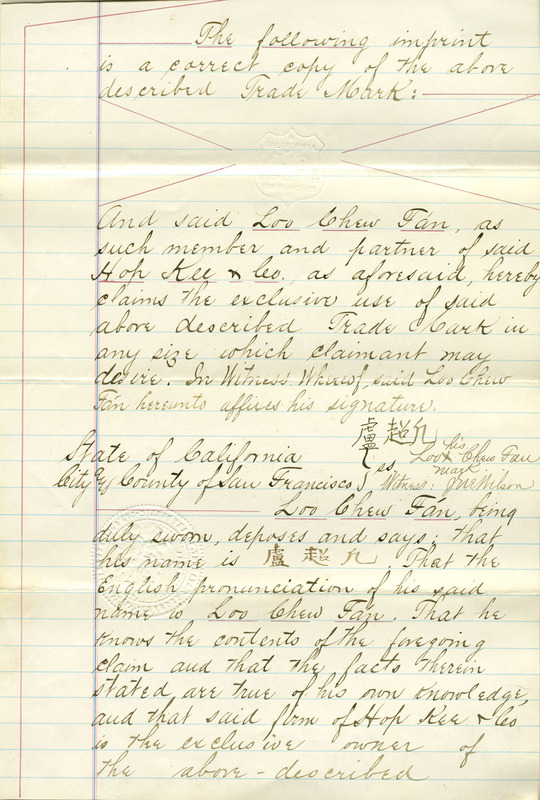 The following imprint
is a correct copy of the above
described Trade Mark:
CALIFORNIA
And said Loo Chew Fán, as
such member and partner of said
Hop Kee & Co. as aforesaid, hereby
claims the exclusive use of said
above described Trade Mark in
any size which claimant may
desire. In Witness Whereof said Loo Chew
Fán hereunto affixes his signature.
盧超允 his
Loo x Chew Fan
mark
State of California
City & County of San Francisco } ss Witness: J McWilson
Loo Chew Fán, being
duly sworn, deposes and says: that
his name is 盧超允. That the
English pronunciation of his said
name is Loo Chew Fán. That he
knows the contents of the foregoing
claim and that the facts therein
stated are true of his own knowledge,
and that said firm of Hop Kee & Co
is the exclusive owner of
the above-described